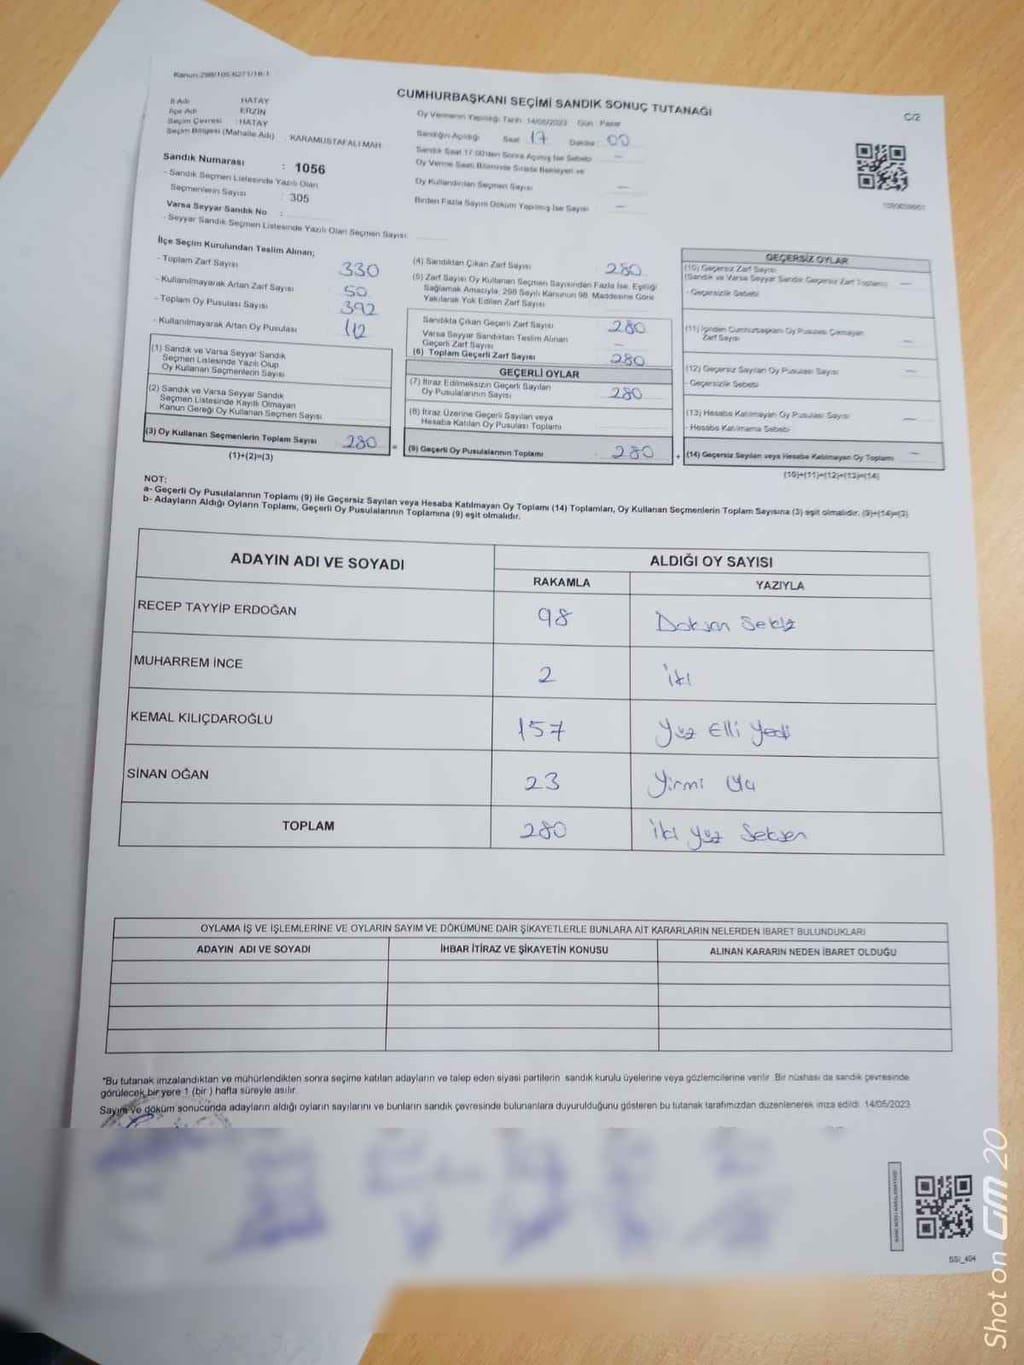 Kanun:298/105-6271/18-1
CUMHURBAŞKANI SEÇİMİ SANDIK SONUÇ TUTANAĞI
C/2
İl Adı HATAY
İlçe Adı ERZİN
Seçim Çevresi : HATAY
Seçim Bölgesi (Mahalle Adı) : KARAMUSTAFALI MAH
Sandık Numarası : 1056
- Sandık Seçmen Listesinde Yazılı Olan
Seçmenlerin Sayısı : 305
Varsa Seyyar Sandık No :
- Seyyar Sandık Seçmen Listesinde Yazılı Olan Seçmen Sayısı:
Oy Vermenin Yapıldığı Tarih: 14/05/2023 Gün : Pazar
Sandığın Açıldığı Saat : 17 Dakika : 00
Sandık Saat 17:00'den Sonra Açılmış İse Sebebi —
Oy Verme Saati Bitiminde Sırada Bekleyen ve
Oy Kullandırılan Seçmen Sayısı —
Birden Fazla Sayım Döküm Yapılmış İse Sayısı —
İlçe Seçim Kurulundan Teslim Alınan;
- Toplam Zarf Sayısı 330
- Kullanılmayarak Artan Zarf Sayısı 50
- Toplam Oy Pusulası Sayısı 392
- Kullanılmayarak Artan Oy Pusulası 112
(1) Sandık ve Varsa Seyyar Sandık
Seçmen Listesinde Yazılı Olup
Oy Kullanan Seçmenlerin Sayısı
(2) Sandık ve Varsa Seyyar Sandık
Seçmen Listesinde Kayıtlı Olmayan
Kanun Gereği Oy Kullanan Seçmen Sayısı
(3) Oy Kullanan Seçmenlerin Toplam Sayısı 280
(1)+(2)=(3)
(4) Sandıktan Çıkan Zarf Sayısı 280
(5) Zarf Sayısı Oy Kullanan Seçmen Sayısından Fazla İse, Eşitliği
Sağlamak Amacıyla, 298 Sayılı Kanunun 98. Maddesine Göre
Yakılarak Yok Edilen Zarf Sayısı
Sandıkta Çıkan Geçerli Zarf Sayısı 280
Varsa Seyyar Sandıktan Teslim Alınan
Geçerli Zarf Sayısı —
(6) Toplam Geçerli Zarf Sayısı 280
GEÇERLİ OYLAR
(7) İtiraz Edilmeksizin Geçerli Sayılan
Oy Pusulalarının Sayısı 280
(8) İtiraz Üzerine Geçerli Sayılan veya
Hesaba Katılan Oy Pusulası Toplamı
= (9) Geçerli Oy Pusulalarının Toplamı 280
GEÇERSİZ OYLAR
(10) Geçersiz Zarf Sayısı
(Sandık ve Varsa Seyyar Sandık Geçersiz Zarf Toplamı) —
- Geçersizlik Sebebi
(11) İçinden Cumhurbaşkanı Oy Pusulası Çıkmayan
Zarf Sayısı —
(12) Geçersiz Sayılan Oy Pusulası Sayısı —
- Geçersizlik Sebebi
(13) Hesaba Katılmayan Oy Pusulası Sayısı —
- Hesaba Katılmama Sebebi
+ (14) Geçersiz Sayılan veya Hesaba Katılmayan Oy Toplamı —
(10)+(11)+(12)+(13)=(14)
NOT:
a- Geçerli Oy Pusulalarının Toplamı (9) ile Geçersiz Sayılan veya Hesaba Katılmayan Oy Toplamı (14) Toplamları, Oy Kullanan Seçmenlerin Toplam Sayısına (3) eşit olmalıdır. (9)+(14)=(3)
b- Adayların Aldığı Oyların Toplamı, Geçerli Oy Pusulalarının Toplamına (9) eşit olmalıdır.
ADAYIN ADI VE SOYADI ALDIĞI OY SAYISI
RAKAMLA YAZIYLA
RECEP TAYYİP ERDOĞAN 98 Doksan Sekiz
MUHARREM İNCE 2 iki
KEMAL KILIÇDAROĞLU 157 Yüz Elli Yedi
SİNAN OĞAN 23 Yirmi Üç
TOPLAM 280 İki Yüz Seksen
OYLAMA İŞ VE İŞLEMLERİNE VE OYLARIN SAYIM VE DÖKÜMÜNE DAİR ŞİKAYETLERLE BUNLARA AİT KARARLARIN NELERDEN İBARET BULUNDUKLARI
ADAYIN ADI VE SOYADI İHBAR İTİRAZ VE ŞİKAYETİN KONUSU ALINAN KARARIN NEDEN İBARET OLDUĞU
*Bu tutanak imzalandıktan ve mühürlendikten sonra seçime katılan adayların ve talep eden siyasi partilerin sandık kurulu üyelerine veya gözlemcilerine verilir. Bir nüshası da sandık çevresinde
görülecek bir yere 1 (bir ) hafta süreyle asılır.
Sayım ve döküm sonucunda adayların aldığı oyların sayılarını ve bunların sandık çevresinde bulunanlara duyurulduğunu gösteren bu tutanak tarafımızdan düzenlenerek imza edildi. 14/05/2023
SSI_404
Shot on GM 20